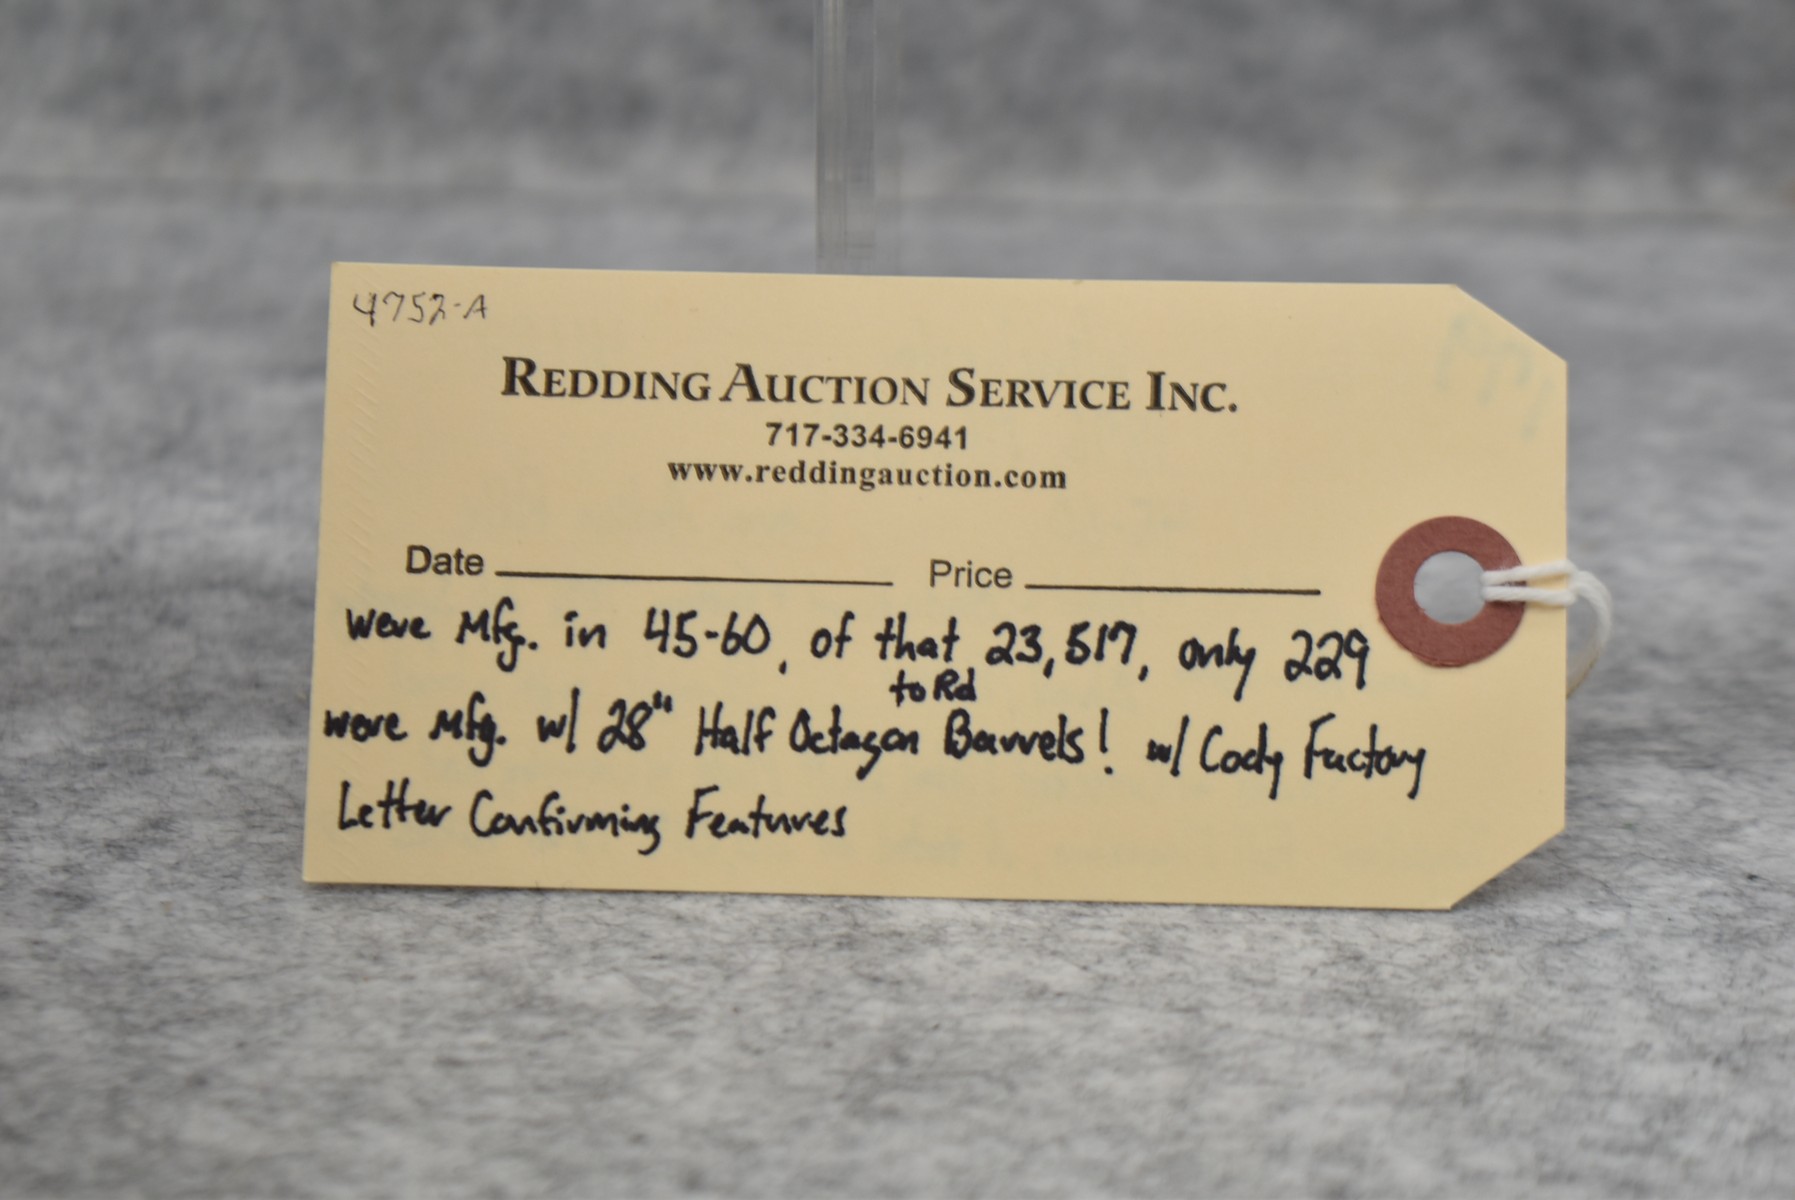 4752-A
REDDING AUCTION SERVICE INC.
717-334-6941
www.reddingauction.com
Date Price
were Mfg. in 45-60, of that 23,517, only 229
to Rd
were Mfg. w/ 28" Half Octagon Barrels! w/ Cody Factory
Letter Confirming Features